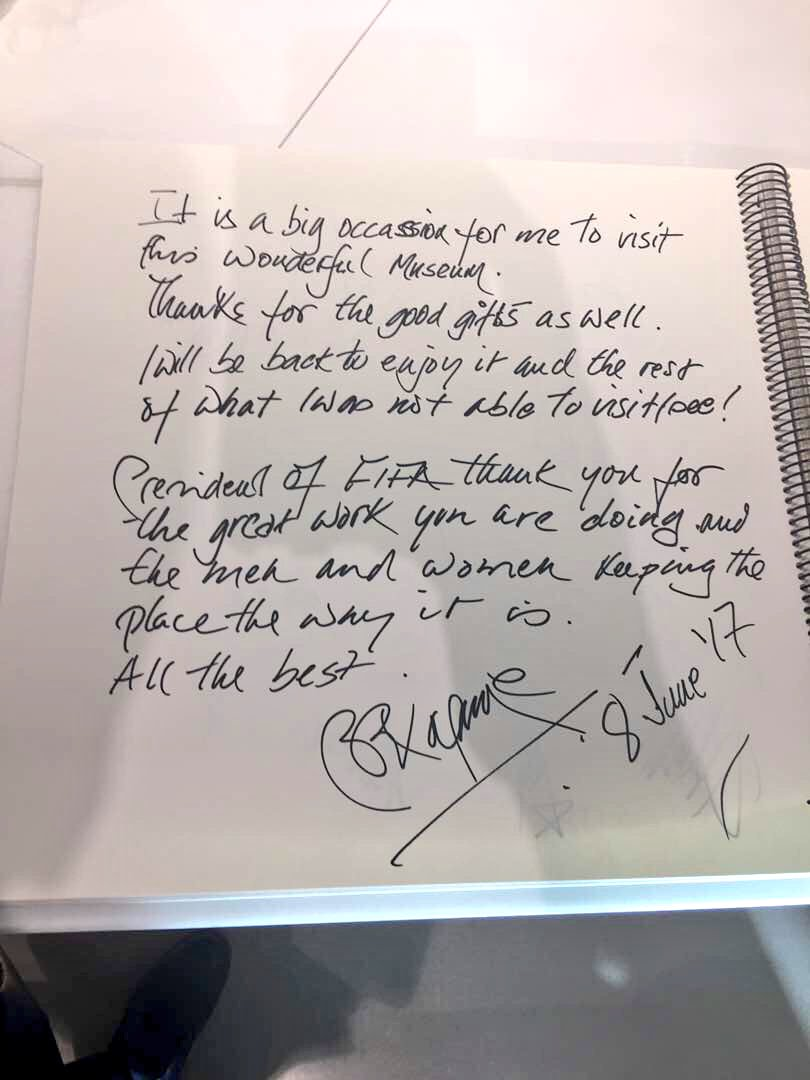 It is a big occassion for me to visit
this wonderful Museum.
Thanks for the good gifts as well.
I will be back to enjoy it and the rest
of what I was not able to visit/see!
President of FIFA thank you for
the great work you are doing and
the men and women keeping the
place the way it is.
All the best.
Kagame
8 June '17